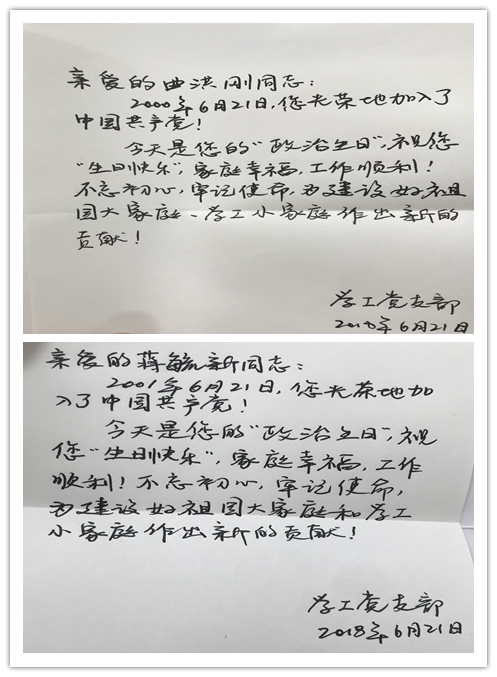 亲爱的曲洪刚同志：
2000年6月21日，您光荣地加入了
中国共产党！
今天是您的“政治生日”，祝您
“生日快乐”，家庭幸福，工作顺利！
不忘初心，牢记使命，为建设好祖
国大家庭、学工小家庭作出新的
贡献！
学工党支部
2018年6月21日
亲爱的蒋毓新同志：
2001年6月21日，您光荣地加
入了中国共产党！
今天是您的“政治生日”，祝
您“生日快乐”，家庭幸福，工作
顺利！不忘初心，牢记使命，
为建设好祖国大家庭和学工
小家庭作出新的贡献！
学工党支部
2018年6月21日